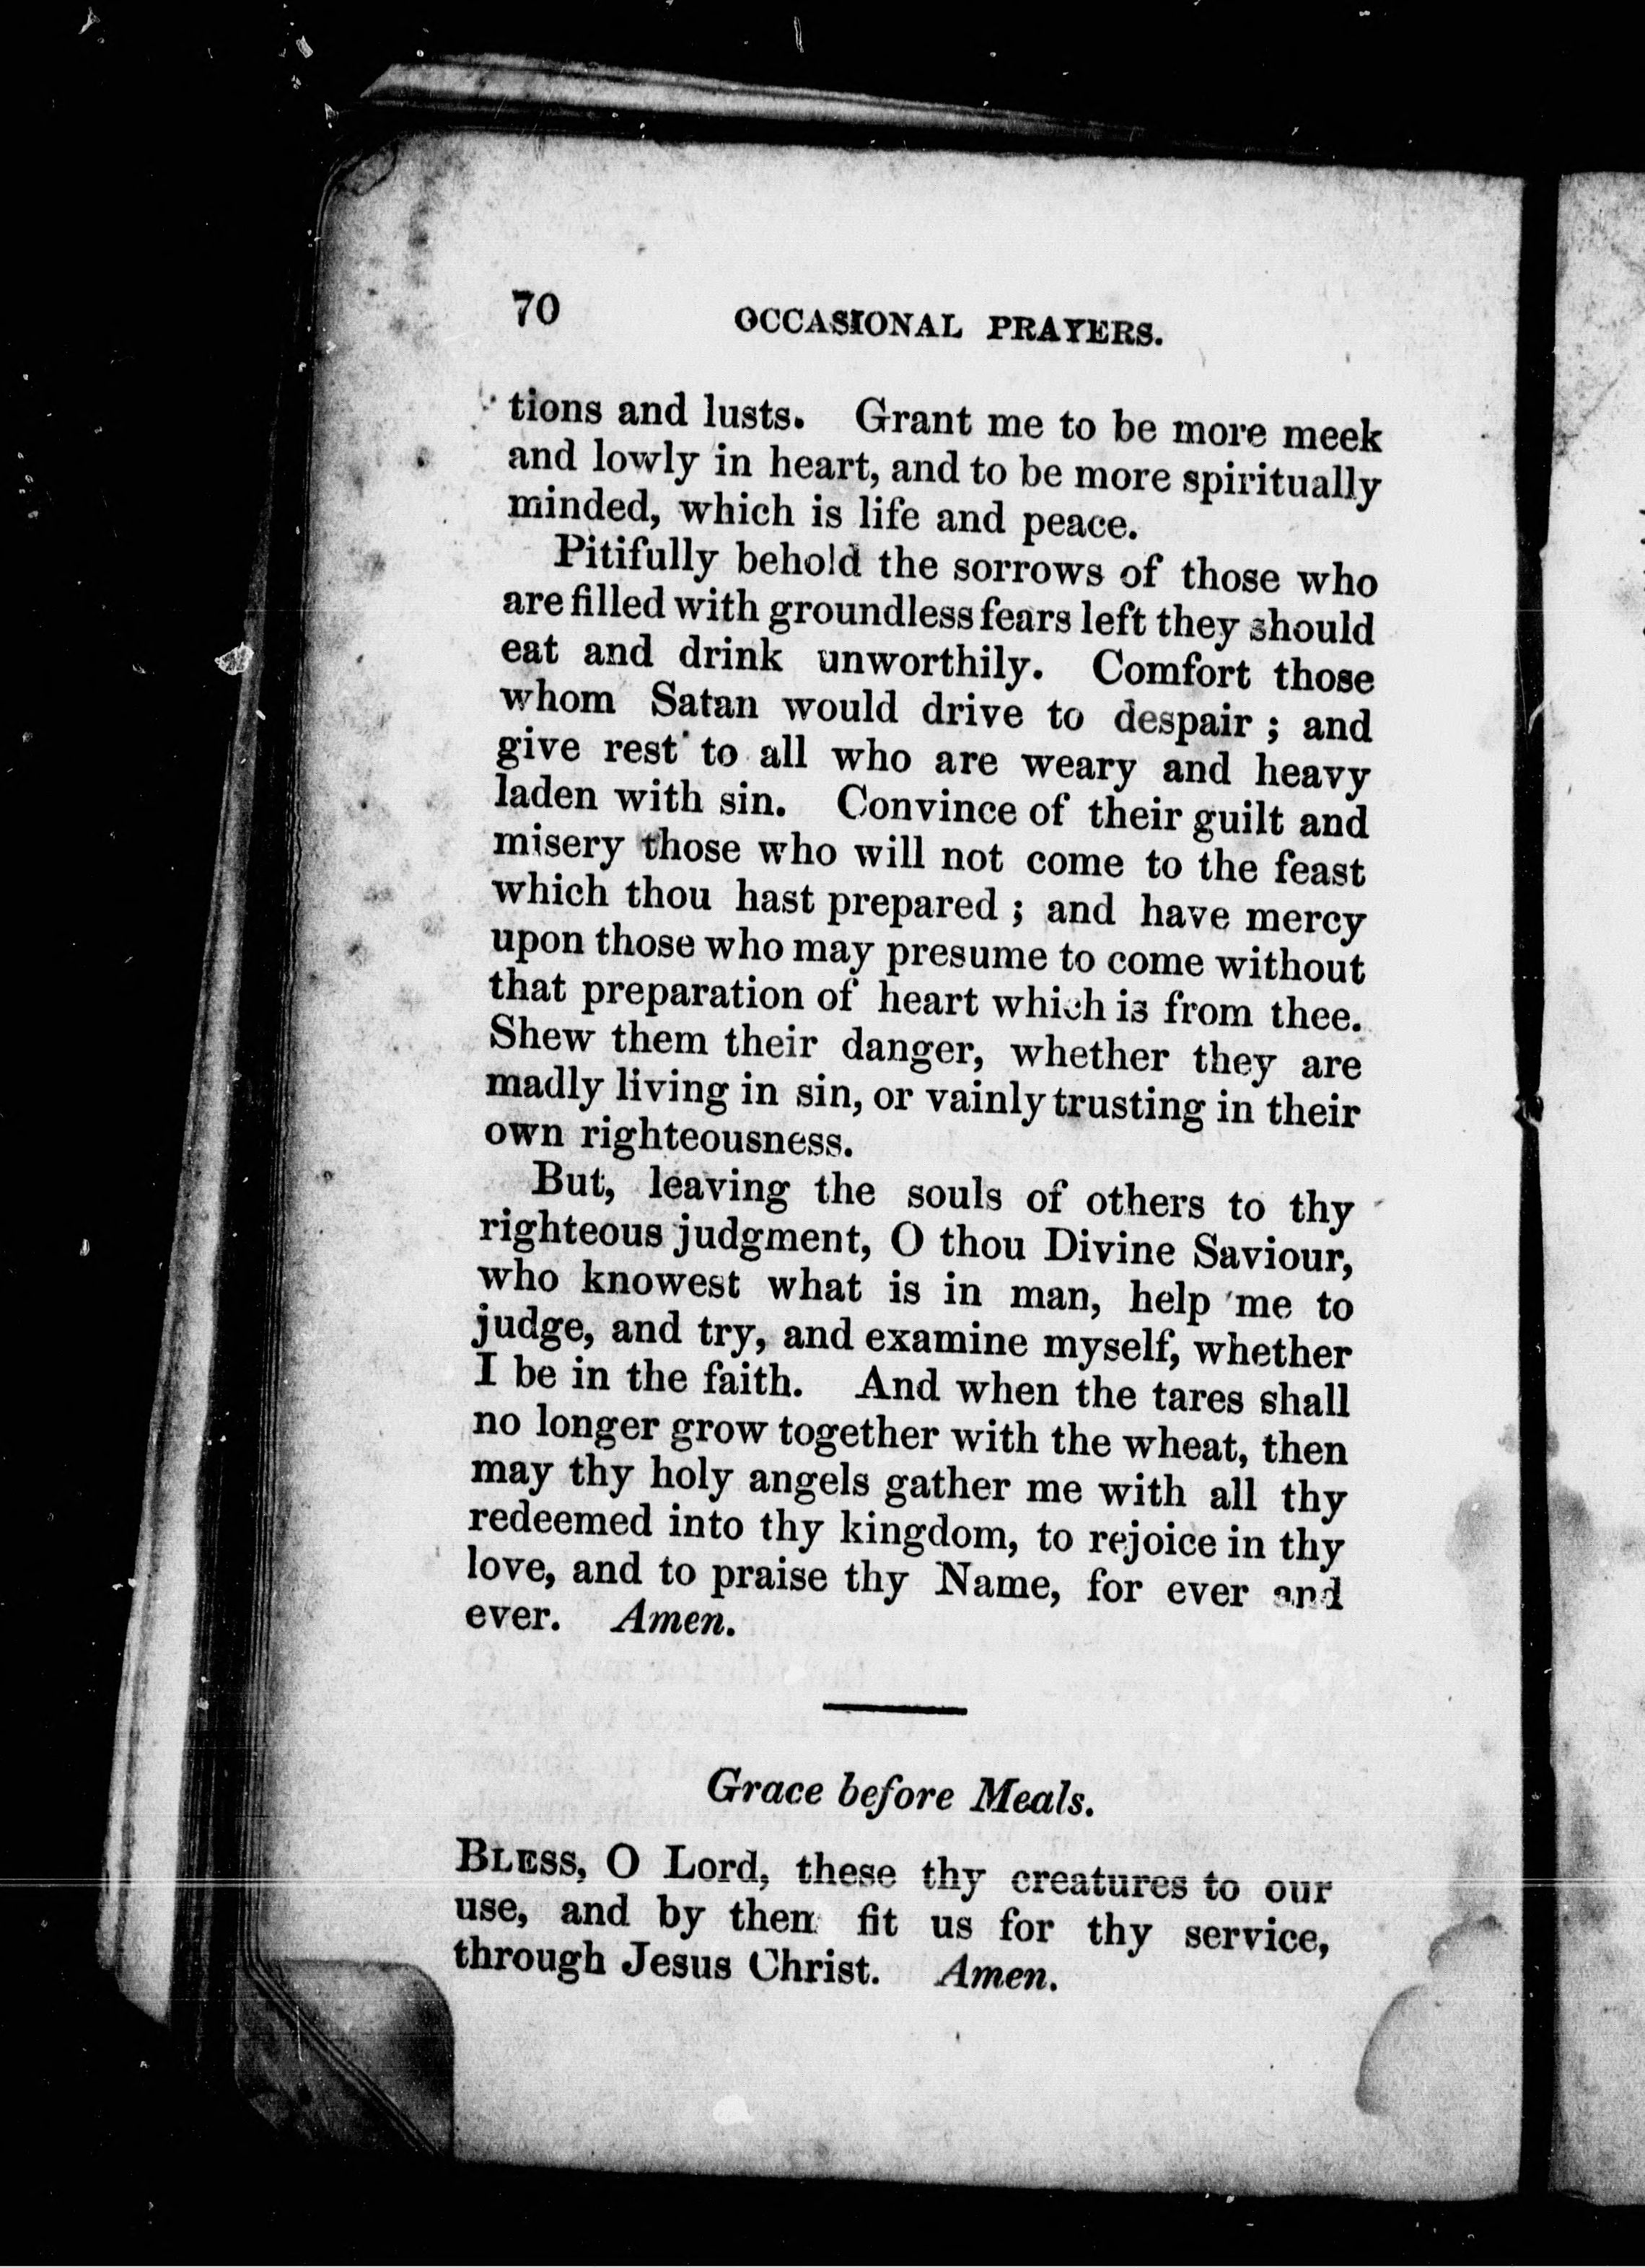 70
OCCASIONAL PRAYERS.
tions and lusts. Grant me to be more meek
and lowly in heart, and to be more spiritually
minded, which is life and peace.
Pitifully behold the sorrows of those who
are filled with groundless fears left they should
eat and drink unworthily. Comfort those
whom Satan would drive to despair ; and
give rest to all who are weary and heavy
laden with sin. Convince of their guilt and
misery those who will not come to the feast
which thou hast prepared ; and have mercy
upon those who may presume to come without
that preparation of heart which is from thee.
Shew them their danger, whether they are
madly living in sin, or vainly trusting in their
own righteousness.
But, leaving the souls of others to thy
righteous judgment, O thou Divine Saviour,
who knowest what is in man, help me to
judge, and try, and examine myself, whether
I be in the faith. And when the tares shall
no longer grow together with the wheat, then
may thy holy angels gather me with all thy
redeemed into thy kingdom, to rejoice in thy
love, and to praise thy Name, for ever and
ever. Amen.
Grace before Meals.
BLESS, O Lord, these thy creatures to our
use, and by them fit us for thy service,
through Jesus Christ. Amen.